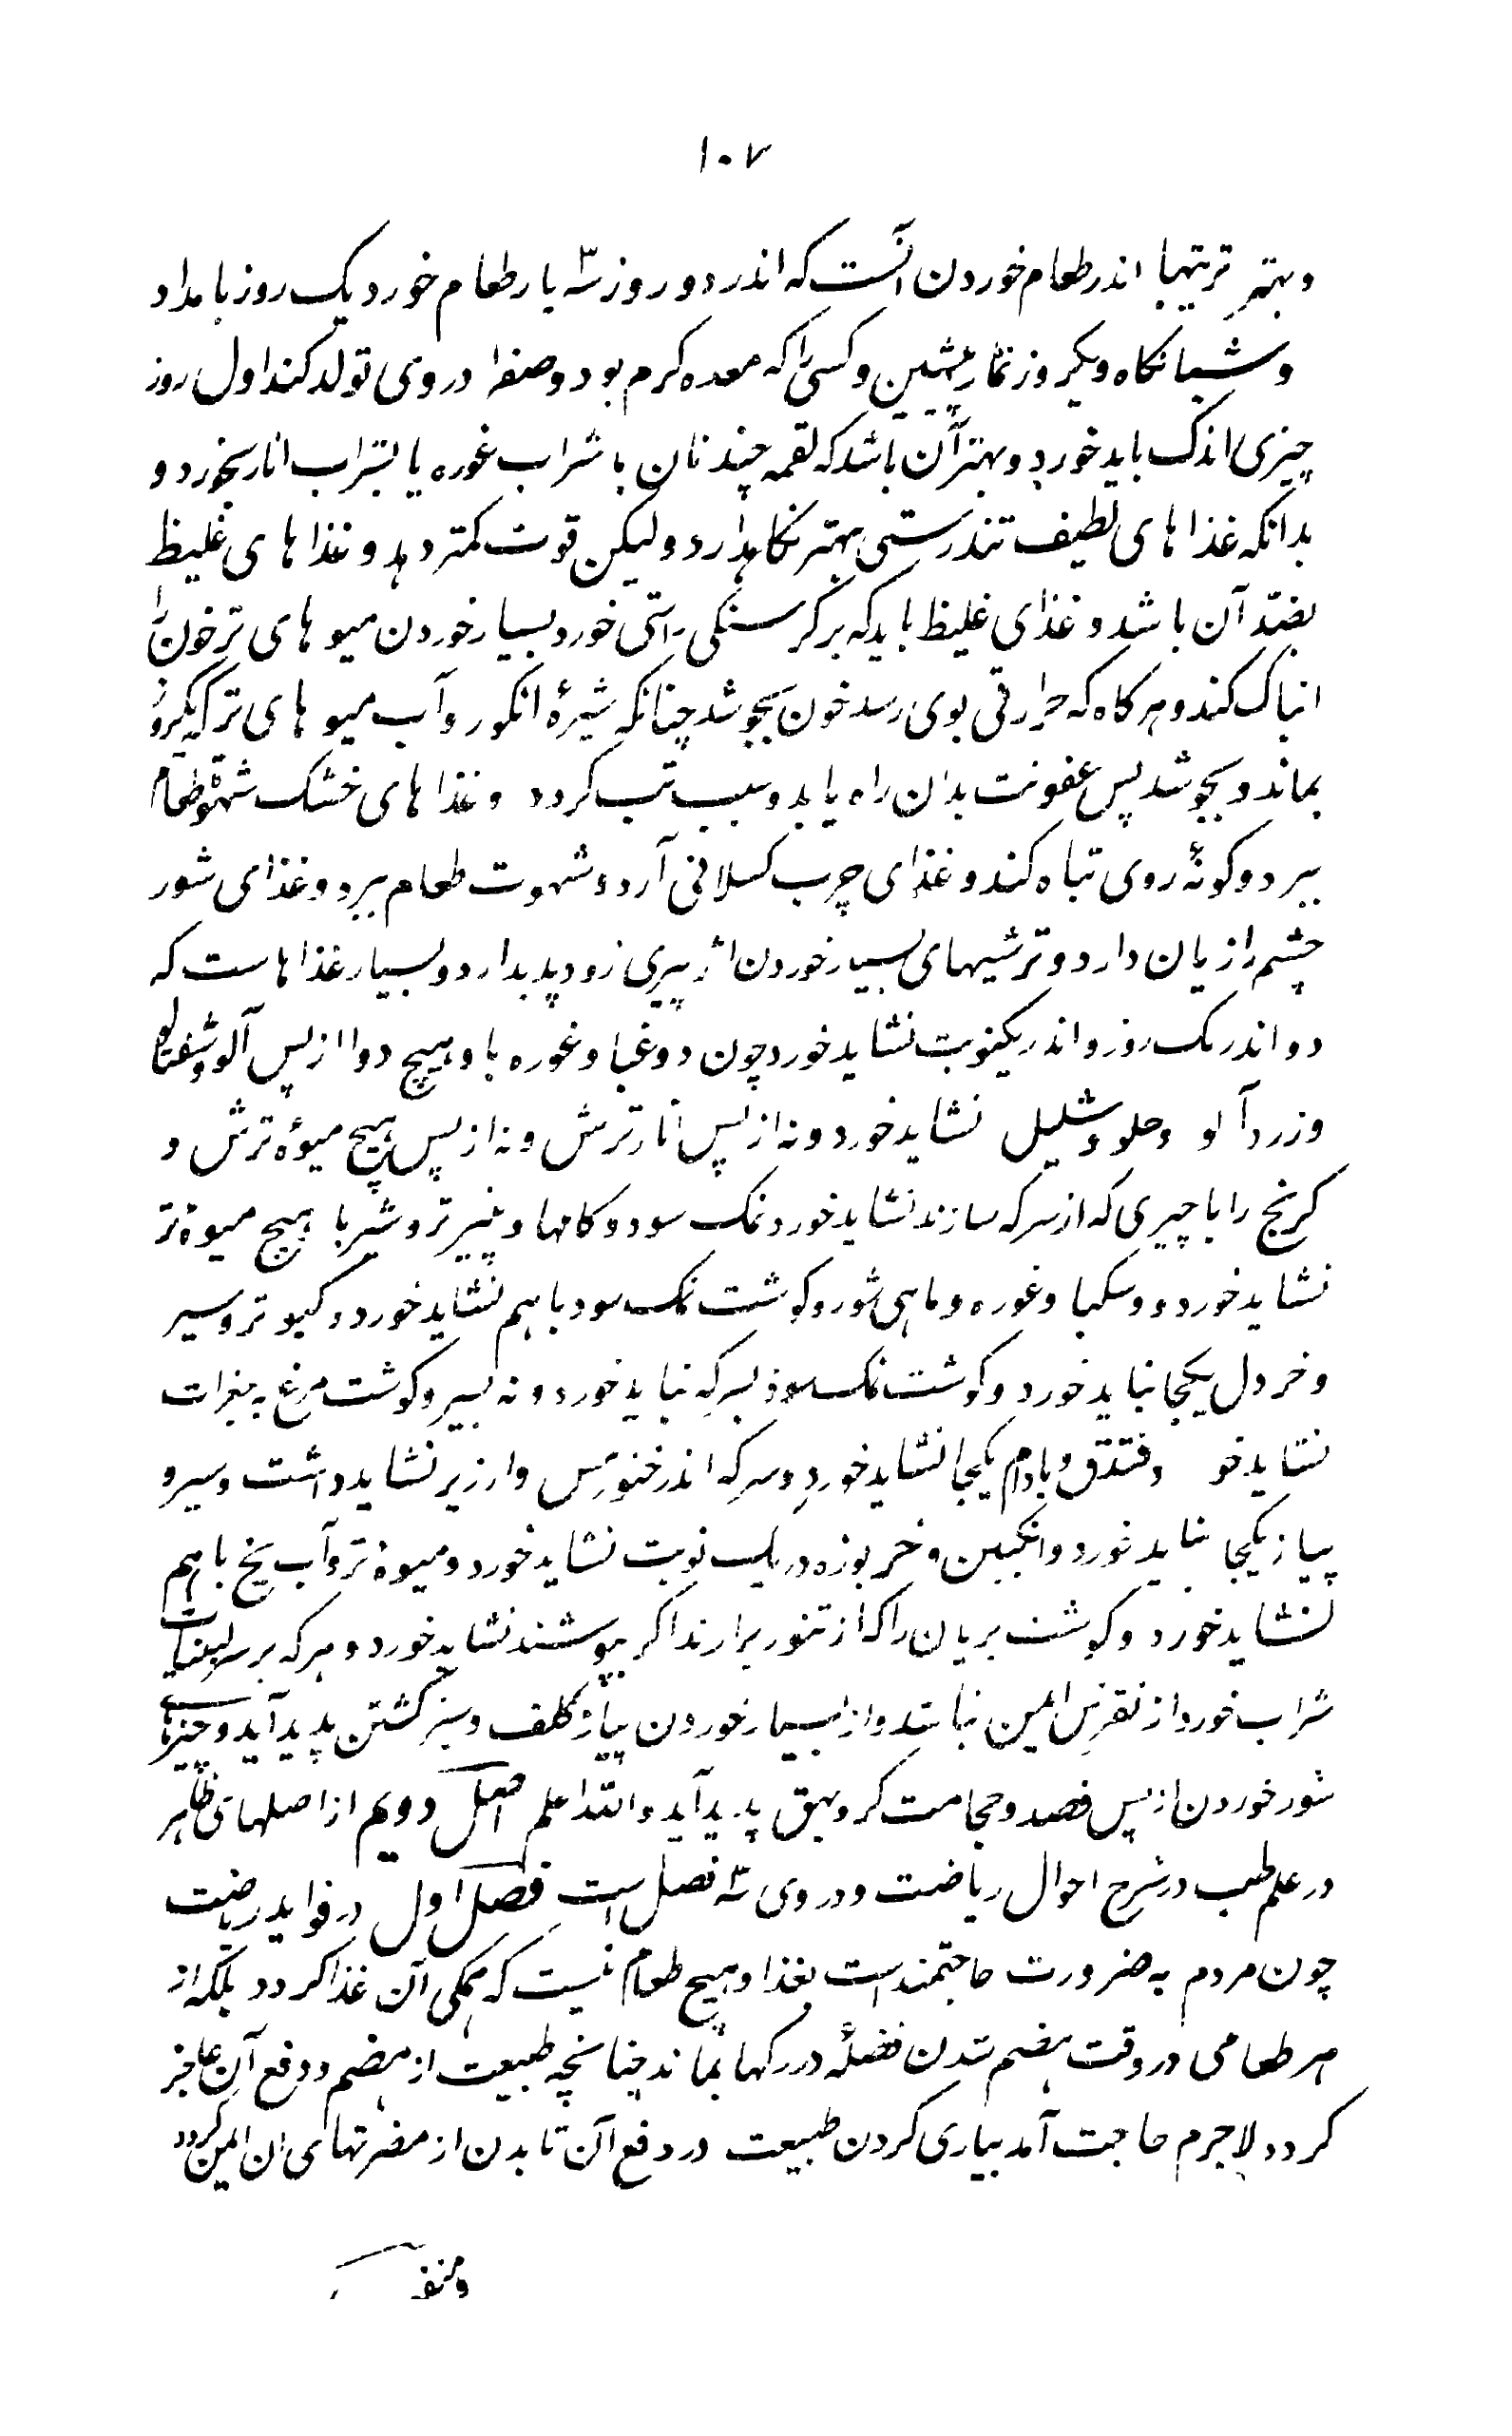 ۱۰۷
و بهتر ترتیبها اندر طعام خوردن آنست که اندر دو روز سه بار طعام خورد یک روز بامداد
و شبانکاه و یکروز نماز پیشین و کسی را که معده کرم بود و صفرا در وی تولد کند اول روز
چیزی اندک باید خورد و بهتر آن باشد که لقمه چند نان با شراب غوره یا بشراب انار بخورد و
بدانکه غذاهای لطیف تندرستی بهتر نکاهدارد و لیکن قوت کمتر دهد و غذاهای غلیظ
بضد آن باشد و غذای غلیظ باید که بر کرسنکی راستی خورد بسیار خوردن میوهای تر خون را
انباک کند و هرکاه که حرارتی بوی رسد خون بجوشد چنانکه شیرهٔ انکور و آب میوهای تر که یکروز
بماند و بجوشد پس عفونت بدان راه یابد و سبب تب کردد و غذاهای خشک شهوة طعام
ببرد و کونهٔ روی تباه کند و غذای چرب کسلانی آرد و شهوت طعام ببرد و غذای شور
چشم را زیان دارد و ترشیهای بسیار خوردن اثر پیری زود پدیدارد و بسیار غذاهاست که
دو اندر یک روز و اندر یکنوبت نشاید خورد چون دوغبا و غوره با و هیچ دوا از پس آلو و شفتالو
و زردآلو و حلو و شلیل نشاید خورد و نه از پس انار ترش و نه از پس هیچ میوهٔ ترش و
کرنج را با چیزی که از سرکه سازند نشاید خورد و نمک سود و کامها و پنیر تر و شیر با هیچ میوهٔ تر
نشاید خورد و سکبا و غوره و ماهی شور و کوشت نمک سود با هم نشاید خورد و کبوتر و سیر
و خردل یکجا نباید خورد و کوشت نمکسود بسرکه نباید خورد و نه بسیر و کوشت مرغ به جغرات
نشاید خو و فندق و بادام یکجا نشاید خورد و سرکه اندر خنور مس و ارزیر نشاید داشت و سیر و
پیاز یکجا نباید خورد و انکبین و خربوزه در یک نوبت نشاید خورد و میوهٔ تر و آب یخ با هم
نشاید خورد و کوشت بریان را که از تنور برارند اکر بپوشند نشاید خورد و هر که بر سر لبنیات
شراب خورد از نقرس ایمن نباشد و از بسیار خوردن پیاز کلف و سبز کشتن پدید آید و چیزهای
شور خوردن از پس فصد و حجامت کر و بهق پدید آید والله اعلم اصل دویم از اصلهای ظاهر
در علم طب در شرح احوال ریاضت و در وی سه فصل است فصل اول در فواید ریاضت
چون مردم به ضرورت حاجتمند است بغذا و هیچ طعام نیست که همکی آن غذا کردد بلکه از
هر طعامی در وقت هضم شدن فضلهٔ در رکها بماند چنانچه طبیعت از هضم و دفع آن عاجز
کردد لاجرم حاجت آمد بیاری کردن طبیعت در دفع آن تا بدن از مضرتهای ان ایمن کردد